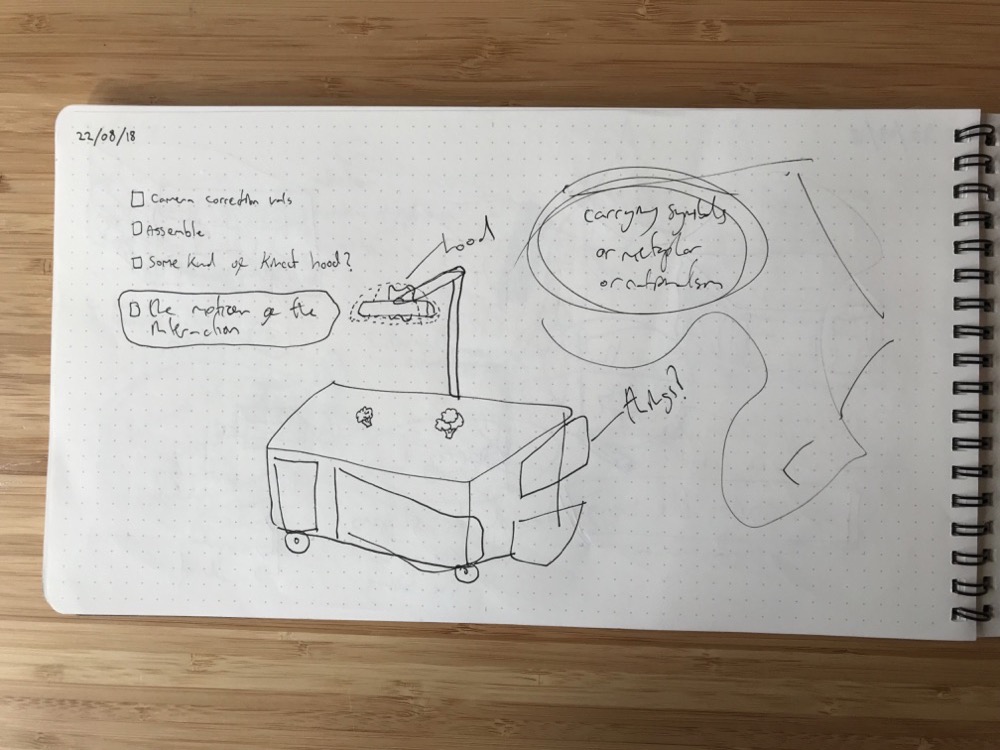 22/08/18
Camera correction vals
Assemble
Some kind of Kinect hood?
The of the
interaction
hood
carrying symbols
or metaphor
or
Things?